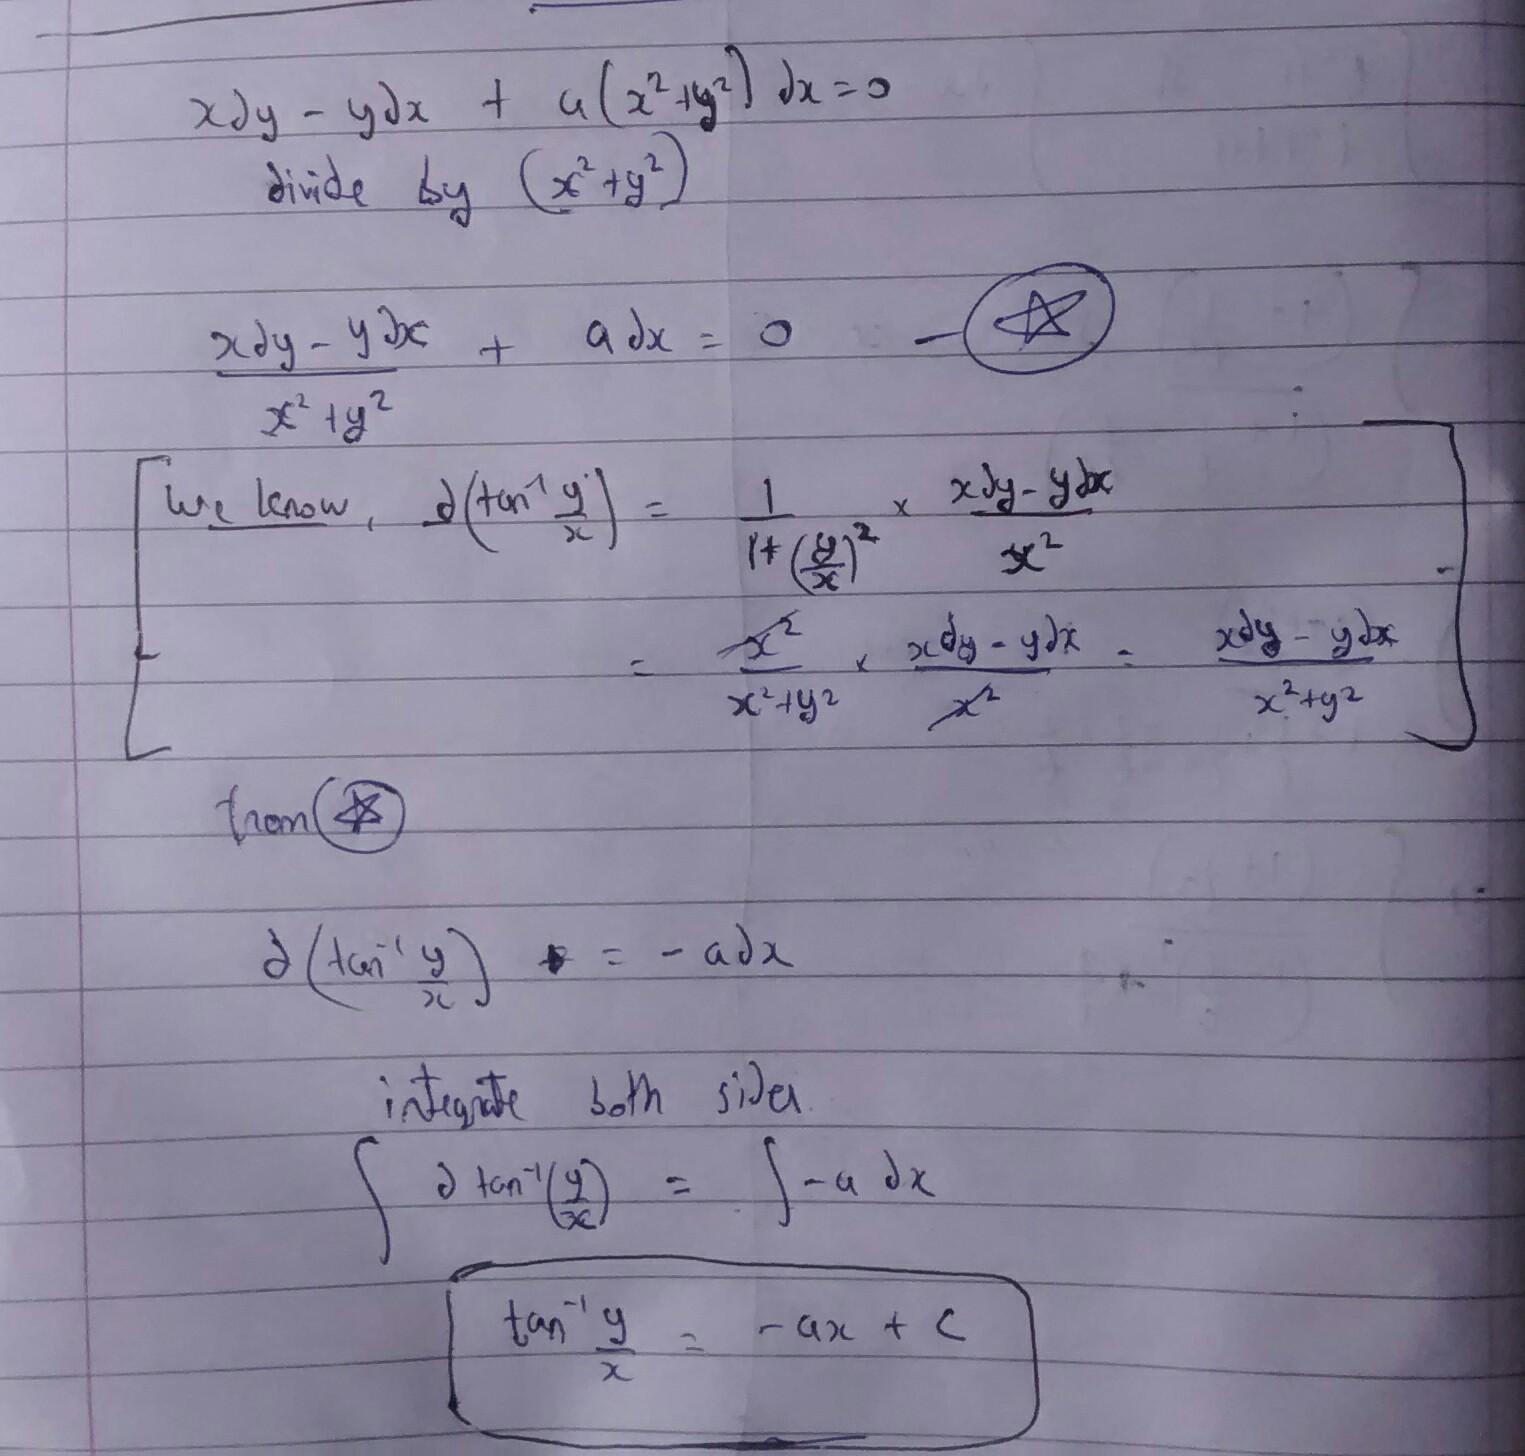 xdy - ydx + a(x²+y²) dx = 0
divide by (x²+y²)
(xdy - ydx)/(x²+y²) + adx = 0 — ☆
[We know, d(tan⁻¹ y/x) = 1/(1+(y/x)²) × (xdy - ydx)/x²
= x²/(x²+y²) × (xdy - ydx)/x² = (xdy - ydx)/(x²+y²)]
from ☆
d(tan⁻¹ y/x) = - adx
integrate both sides
∫ d tan⁻¹(y/x) = ∫ -a dx
tan⁻¹ y/x = -ax + c